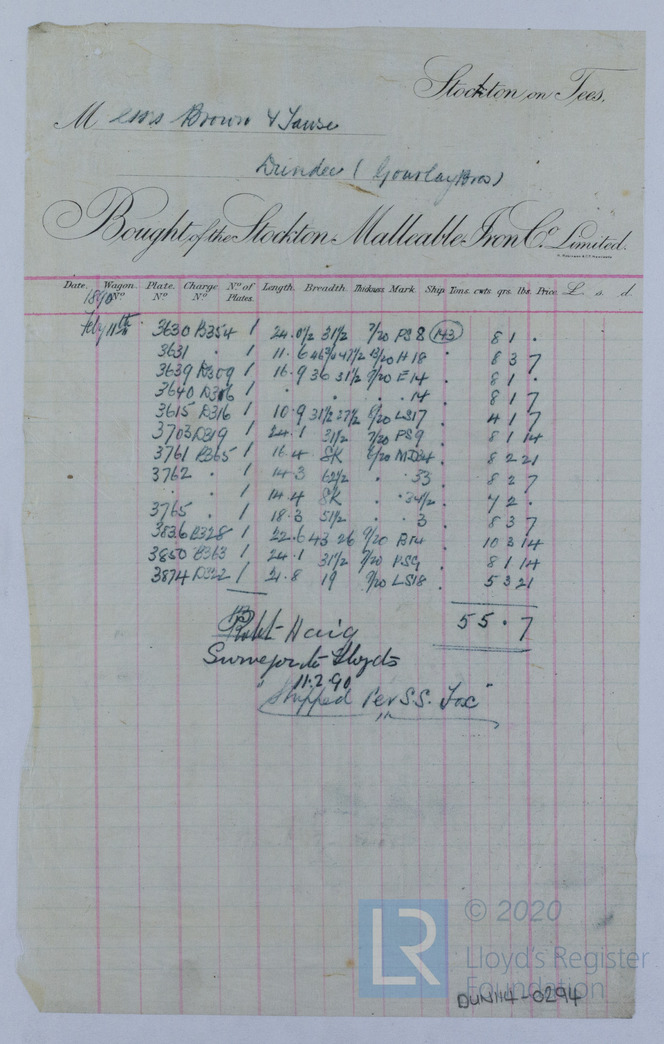 Stockton on Tees,
Messrs Brown & Tawse
Dundee (Gourlay Bros)
Bought of the Stockton Malleable Iron Co. Limited.
Date. Wagon No Plate. No Charge No No of Plates. Length. Breadth. Thickness Mark. Ship Tons. cwts qrs. lbs. Price. £ s. d.
1890
Feby 11th 3630 B354 1 24.0½ 31½ 7/20 PS 8 (143) 8 1 .
3631 . 1 11.6 13/20 H 18 . 8 3 7
3639 D309 1 16.9 36 31½ 9/20 E14 . 8 1 .
3640 D316 1 . . . . 14 . 8 1 7
3615 D316 1 10.9 31½ 27½ 8/20 LS17 . 4 1 7
3703 D319 1 24.1 31½ 7/20 PS9 . 8 1 14
3761 B365 1 16.4 SK 8/20 . 8 2 21
3762 . 1 14.3 62½ . . 33 . 8 2 7
. . 1 14.4 SK . . 34½ . 7 2 .
3765 . 1 18.3 51½ . . 3 . 8 3 7
3836 B328 1 22.6 43 26 9/20 B14 . 10 3 14
3850 B363 1 24.1 31½ 7/20 PS9 . 8 1 14
3874 D322 1 21.8 19 7/20 LS18 . 5 3 21
13
55 . 7
Robt Haig
Surveyor to Lloyds
11.2.90
Shipped Per S.S. "Fox"
LR © 2020
Lloyd's Register
Foundation
DUN114-0294